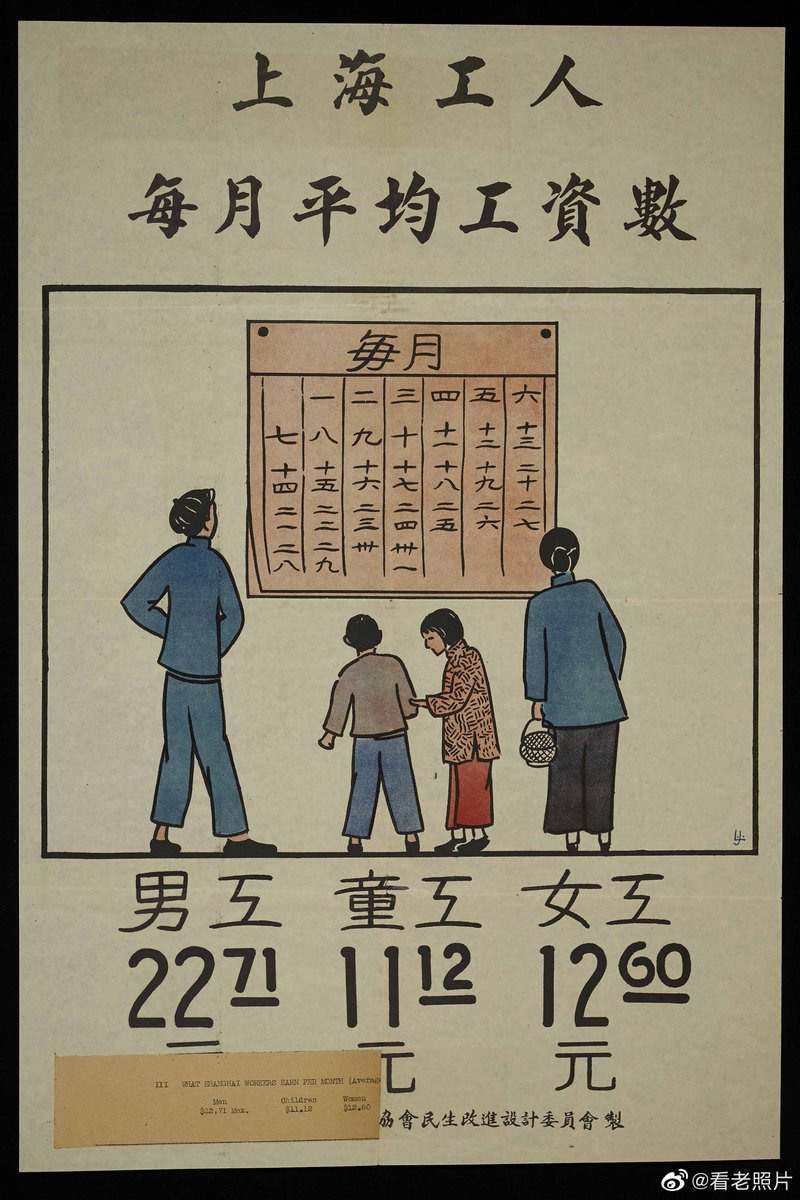 上海工人
每月平均工資數
每月
一 二 三 四 五 六
七 八 九 十 十一 十二 十三
十四 十五 十六 十七 十八 十九 二十
二一 二二 二三 二四 二五 二六 二七
二八 二九 卅 卅一
男工 童工 女工
22 71 11 12 12 60
元 元 元
III WHAT SHANGHAI WORKERS EARN PER MONTH (Average
Men Children Women
$22.71 Mex. $11.12 $12.60
協會民生改進設計委員會 製
@看老照片